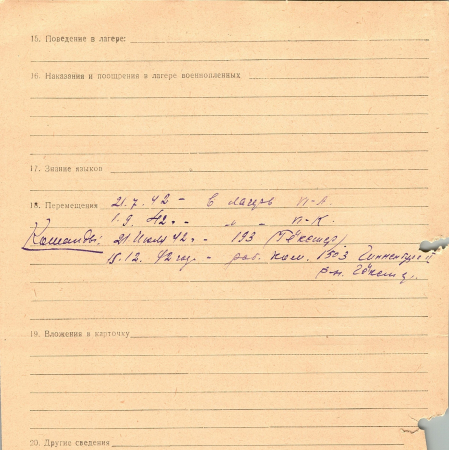 15. Поведение в лагере:
16. Наказания и поощрения в лагере военнопленных
17. Знание языков
18. Перемещения 21.7.42 – в лагерь П-А.
1.9. 42 – " – П-К.
Команды: 21 Июля 42 – 193 (Гёксты)
15.12. 42 год. – раб. ком. 1503
р-н.
19. Вложения в карточку
20. Другие сведения